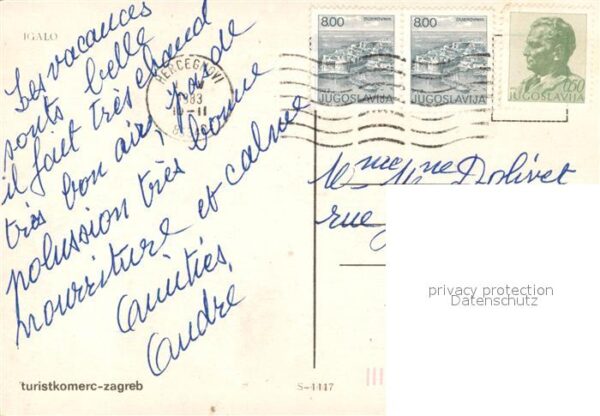 IGALO
Les vacances
sont belle
il faut très chaud
très bon air, pas de
polussion très bonne
nourriture et calme
Amitiés,
André
turistkomerc-zagreb
S-4417
HERCEGNOVI
1983
10-11
8.00
DUBROVNIK
JUGOSLAVIJA
8.00
DUBROVNIK
JUGOSLAVIJA
0.50
JUGOSLAVIJA
Mme Dolivet
rue
privacy protection
Datenschutz